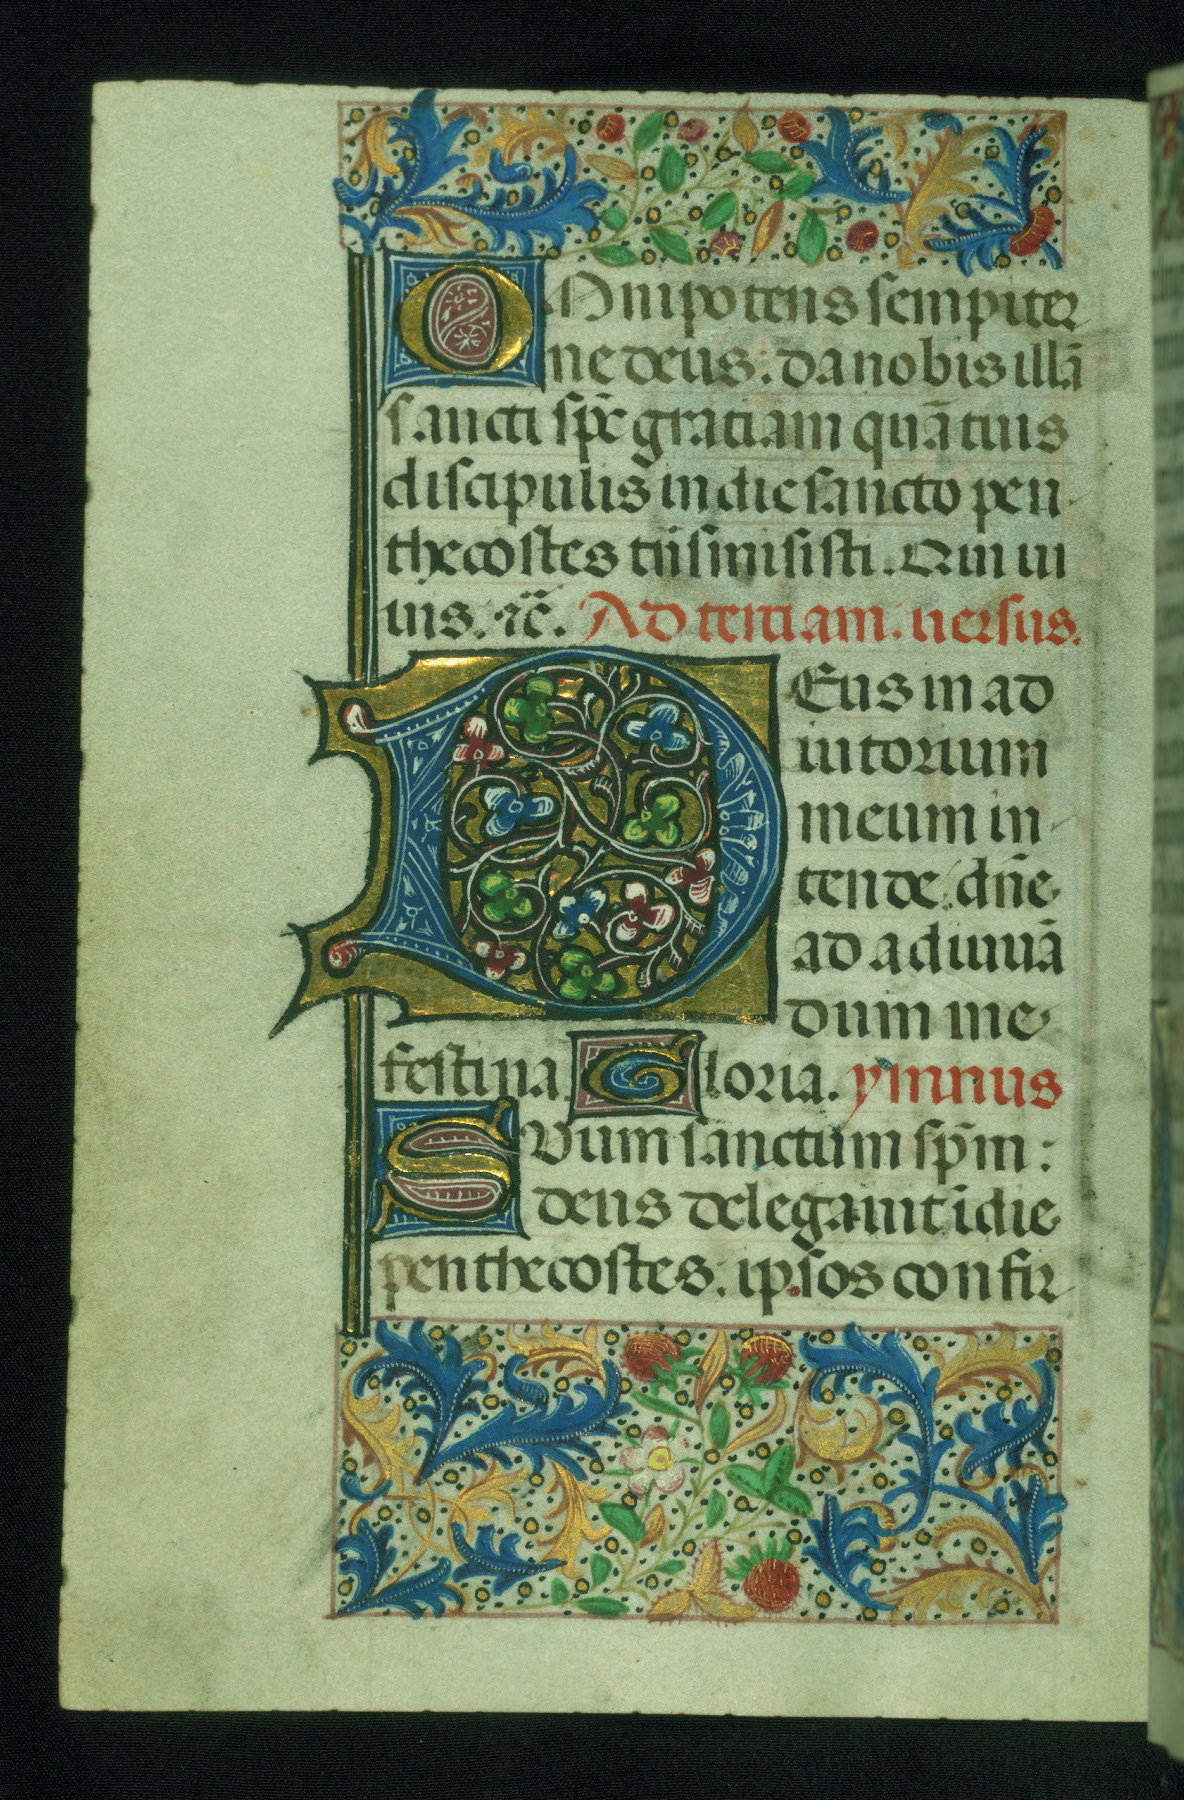 Omnipotens sempiter
ne deus: da nobis illã
sancti sp̃c gratiam quã tuis
discipulis in die sancto pen
thecostes trãsmisisti. Qui ui
uis. ⁊c̃. Ad tertiam. uersus.
DEus in ad
iutorium
meum in
tende dñe
ad adiuuã
dum me
festina Gloria. ymnus
SUum sanctum sp̃m:
deus delegauit ĩ die
penthecostes. ipsos confir